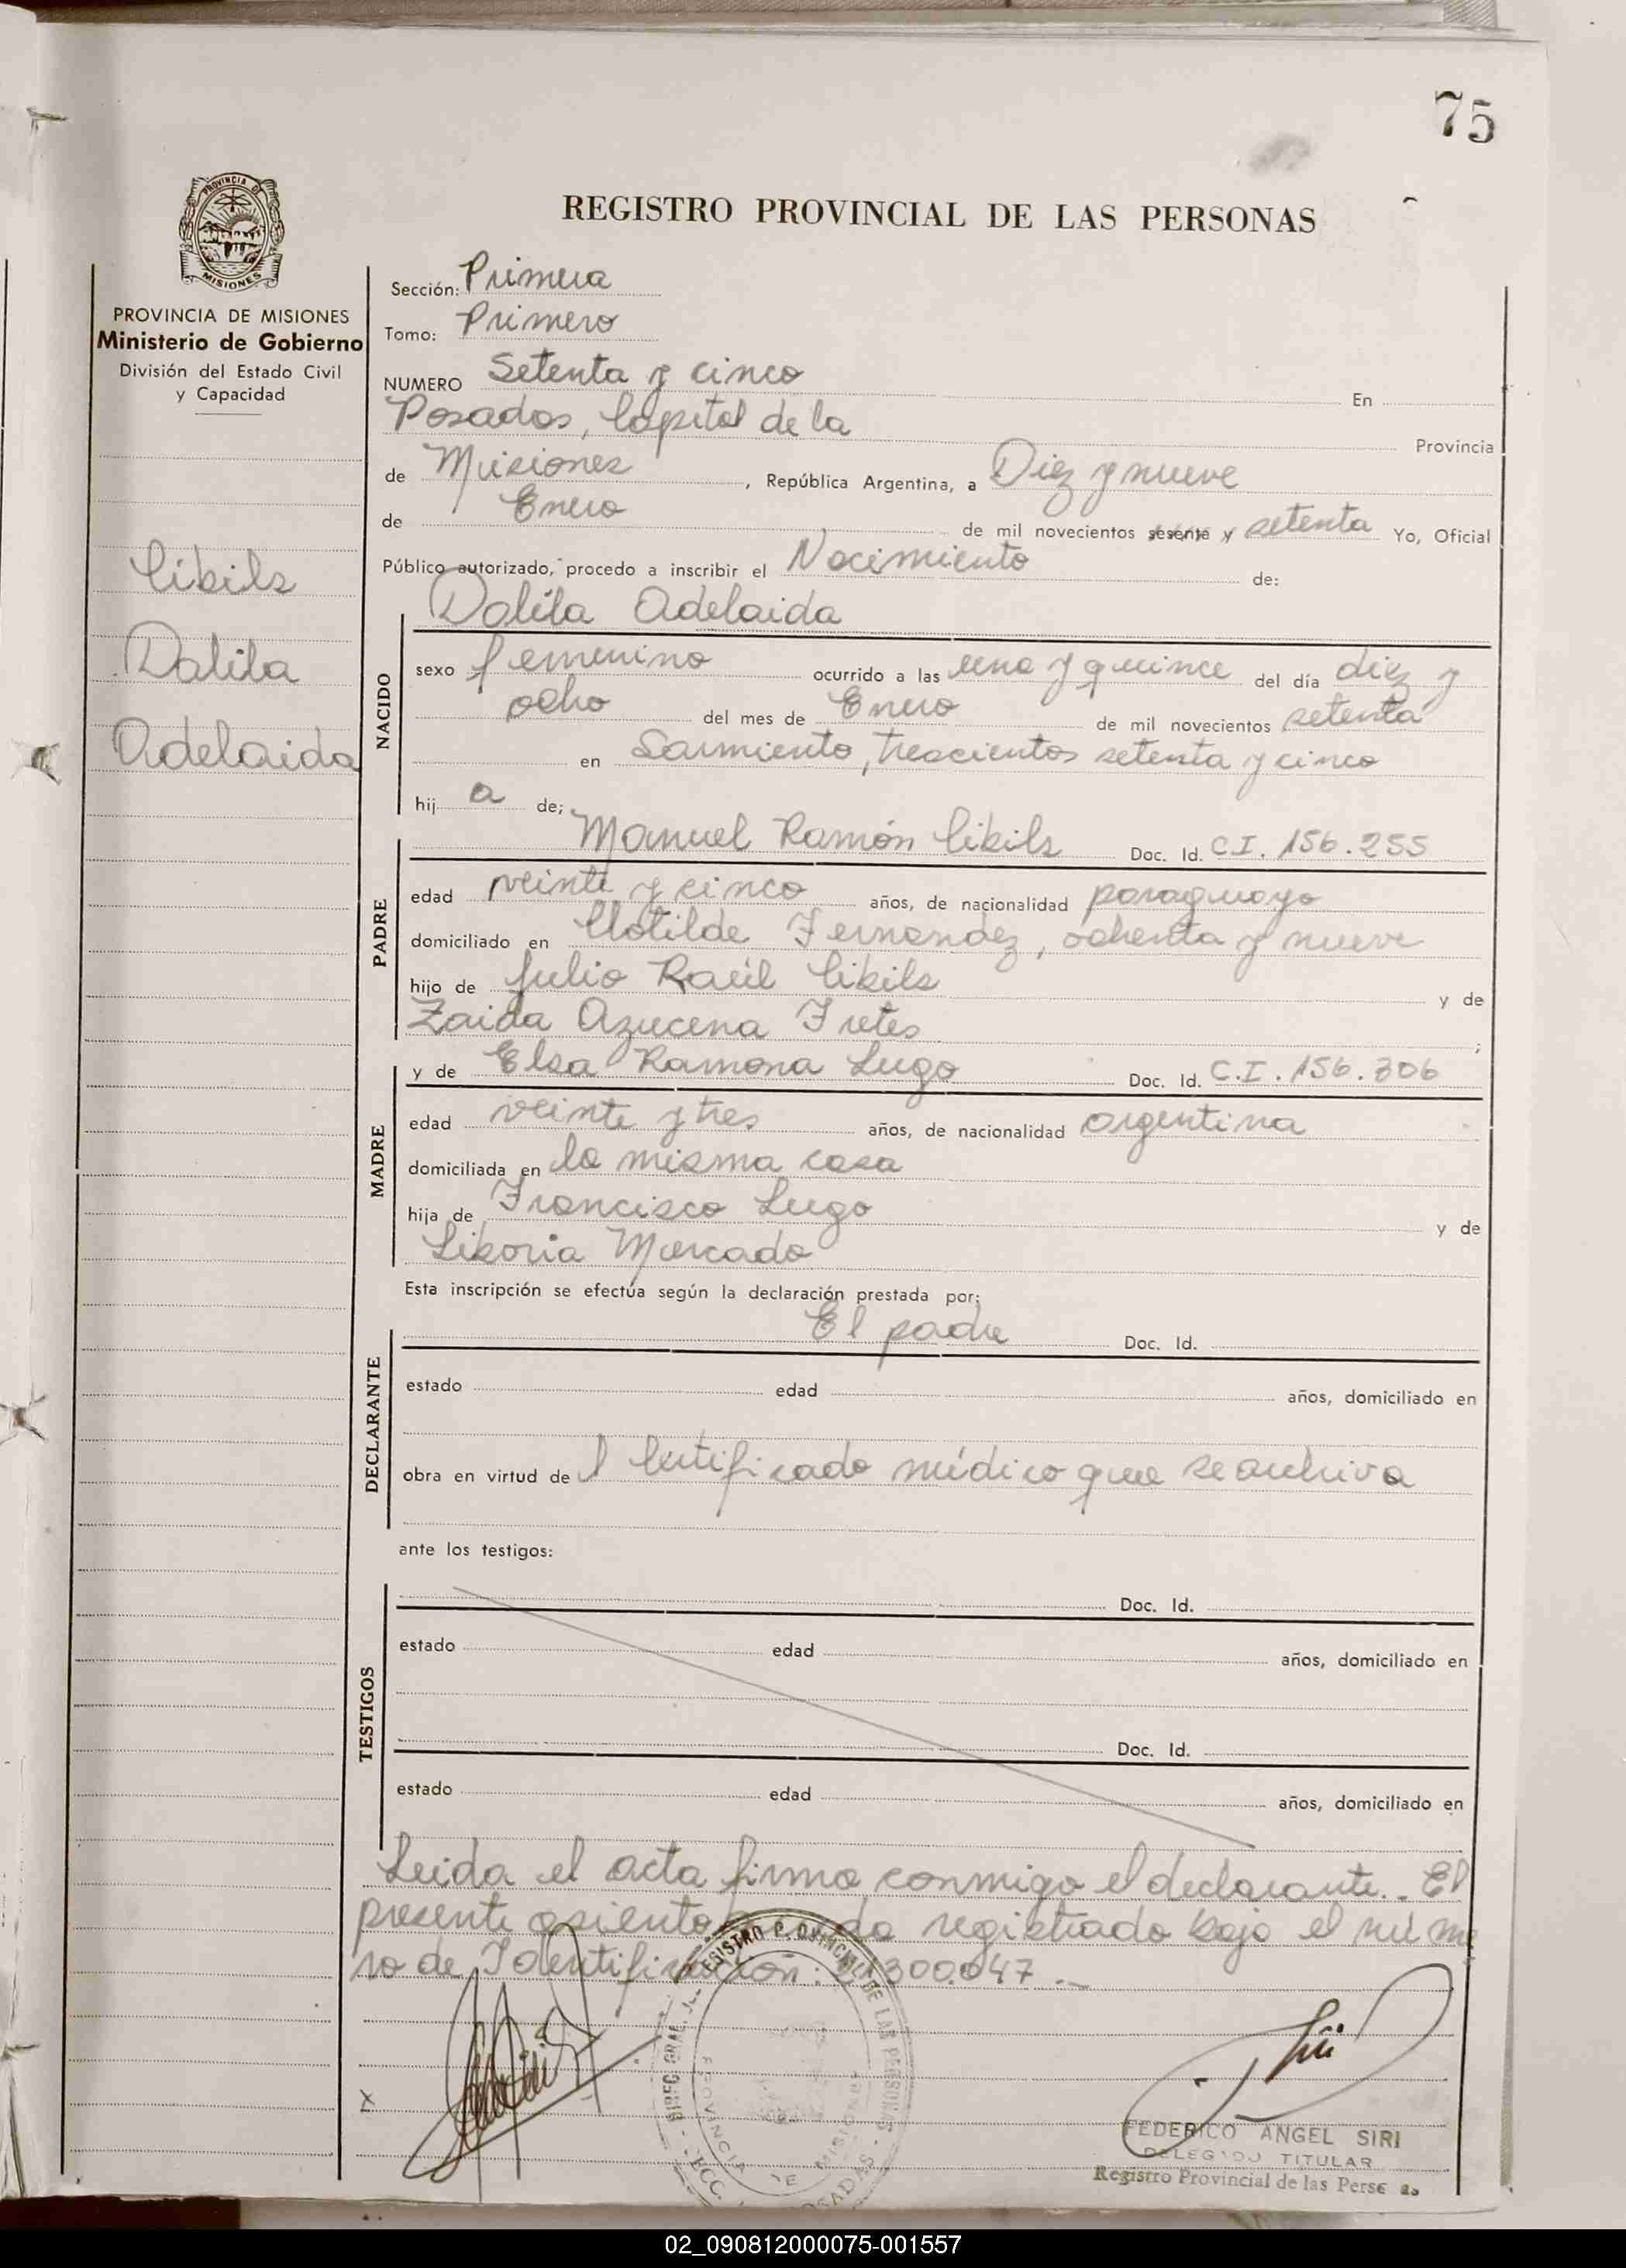 75
PROVINCIA DE MISIONES
REGISTRO PROVINCIAL DE LAS PERSONAS
PROVINCIA DE MISIONES
Ministerio de Gobierno
División del Estado Civil
y Capacidad
Dalila
Adelaida
Sección: Primera
Tomo: Primero
NUMERO Setenta y cinco En
Posadas, Capital de la Provincia
de Misiones, República Argentina, a Diez y nueve
de Enero de mil novecientos sesenta y setenta Yo, Oficial
Público autorizado, procedo a inscribir el Nacimiento de:
Dalila Adelaida
NACIDO
sexo femenino ocurrido a las una y quince del día diez y
ocho del mes de Enero de mil novecientos setenta
en Sarmiento, trescientos setenta y cinco
hij a de;
Manuel Ramón Doc. Id. C.I. 156.255
PADRE
edad veinte y cinco años, de nacionalidad paraguayo
domiciliado en Clotilde Fernandez, ochenta y nueve
hijo de Julio Raúl y de
Zaida Azucena Fretes ;
y de Elsa Ramona Lugo Doc. Id. C.I. 156.306
MADRE
edad veinte y tres años, de nacionalidad argentina
domiciliada en la misma casa
hija de Francisco Lugo y de
Mercado
Esta inscripción se efectúa según la declaración prestada por;
El padre Doc. Id.
DECLARANTE
estado edad años, domiciliado en
obra en virtud de l Certificado médico que se archiva
ante los testigos:
TESTIGOS
Doc. Id.
estado edad años, domiciliado en
Doc. Id.
estado edad años, domiciliado en
Leida el acta firma conmigo el declarante.. El
presente asiento registrado bajo el núme
ro de Identificación: 300.047.-
REGISTRO PROVINCIAL DE LAS PERSONAS
PROVINCIA DE MISIONES
POSADAS
X
FEDERICO ANGEL SIRI
DELEGADO TITULAR
Registro Provincial de las Perso as
02_090812000075-001557